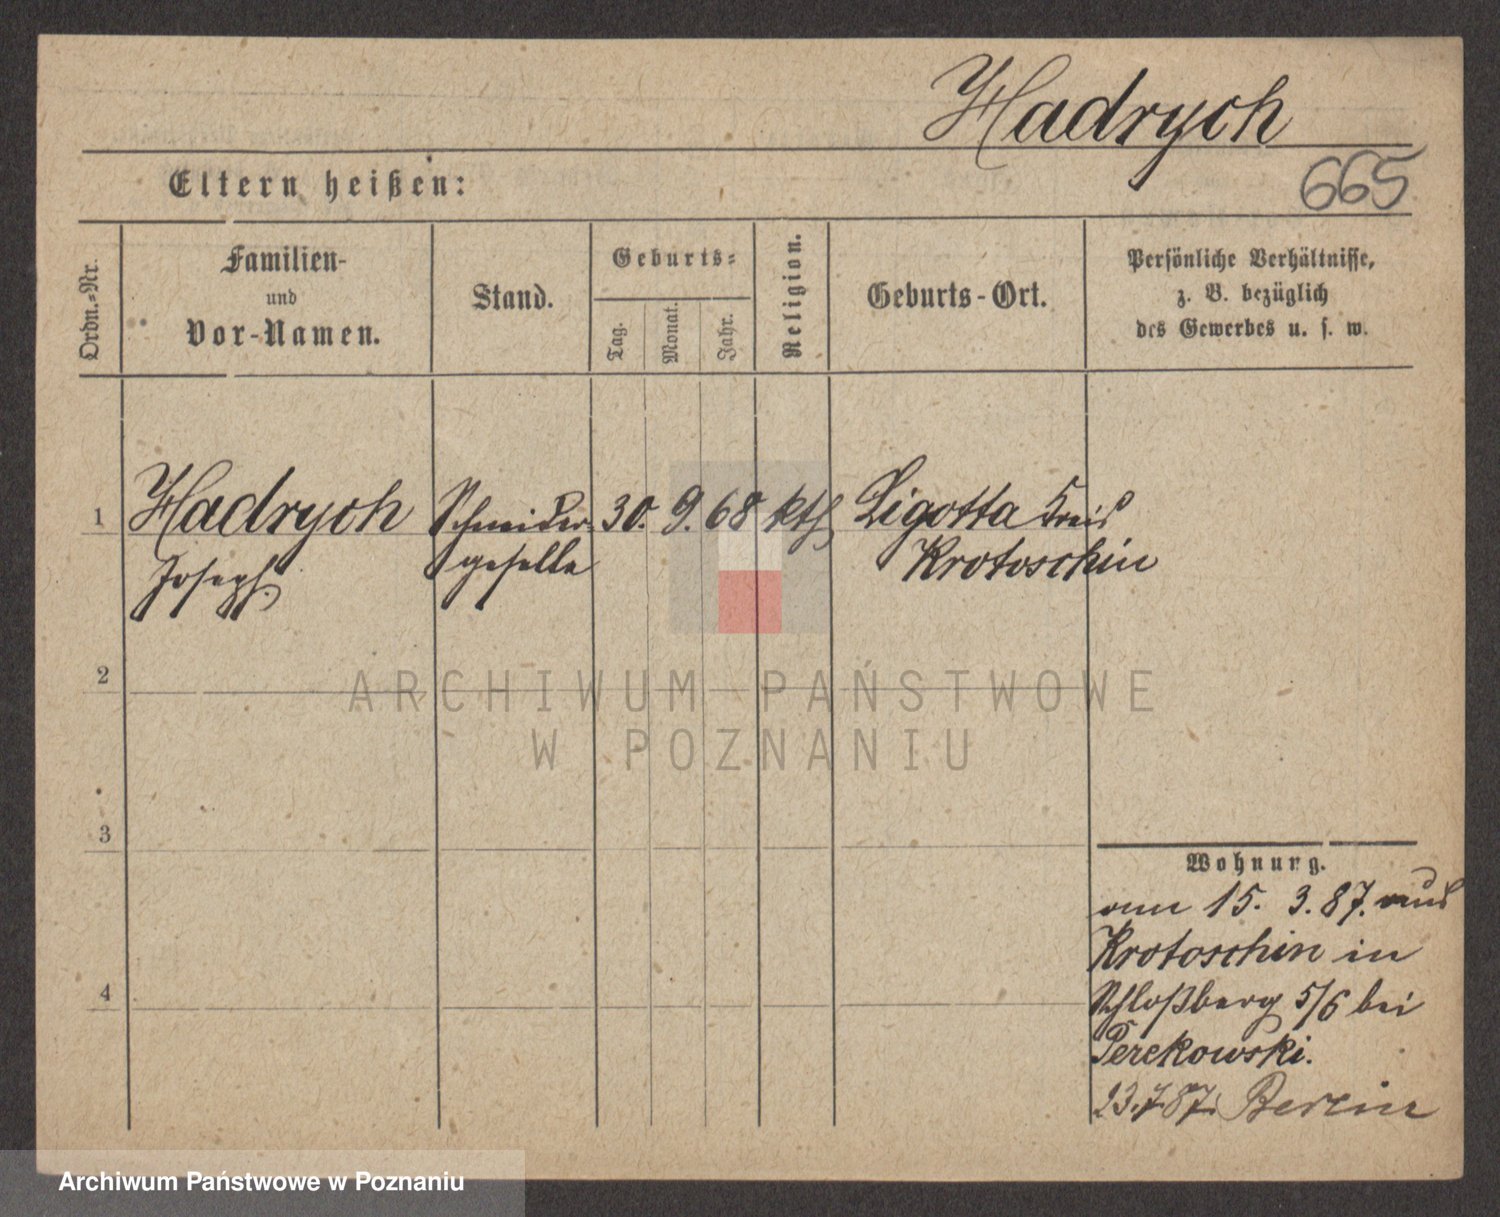 Hadrych
665
Eltern heißen:
Ordn.-Nr.
Familien-
und
Vor-Namen.
Stand.
Geburts-
Tag.
Monat.
Jahr.
Religion.
Geburts-Ort.
Persönliche Verhältnisse,
z. B. bezüglich
des Gewerbes u. s. w.
1 Hadrych Schneider- 30. 9. 68 kth Ligotta Kreis
Joseph. geselle Krotoschin
2
3
4
Wohnung.
am 15. 3. 87. aus
Krotoschin in
Schloßberg 5/6 bei
Perekowski.
23.7.87. Berlin
ARCHIWUM PAŃSTWOWE
W POZNANIU
Archiwum Państwowe w Poznaniu